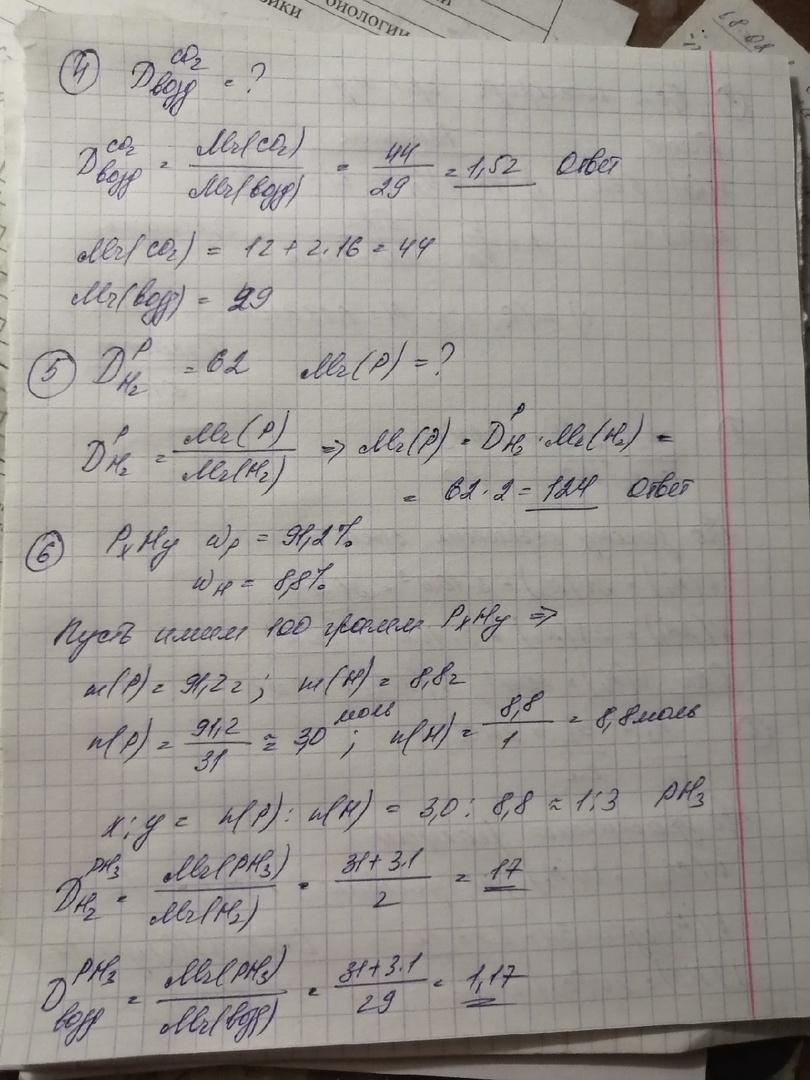 зики
биологии
18.02
4 D возд CO2 = ?
D возд CO2 = Mr(CO2) / Mr(возд) = 44 / 29 = 1,52 Ответ
Mr(CO2) = 12 + 2·16 = 44
Mr(возд) = 29
5 D H2 P = 62 Mr(P) = ?
D H2 P = Mr(P) / Mr(H2) => Mr(P) = D H2 P · Mr(H2) =
= 62·2 = 124 Ответ
6 PxHy wP = 91,2%
wH = 8,8%
Пусть имеем 100 грамм PxHy =>
m(P) = 91,2г; m(H) = 8,8г
n(P) = 91,2 / 31 ≈ 3,0 моль; n(H) = 8,8 / 1 = 8,8моль
x:y = n(P):n(H) = 3,0:8,8 ≈ 1:3 PH3
D H2 PH3 = Mr(PH3) / Mr(H2) = 31+3·1 / 2 = 17
D возд PH3 = Mr(PH3) / Mr(возд) = 31+3·1 / 29 = 1,17